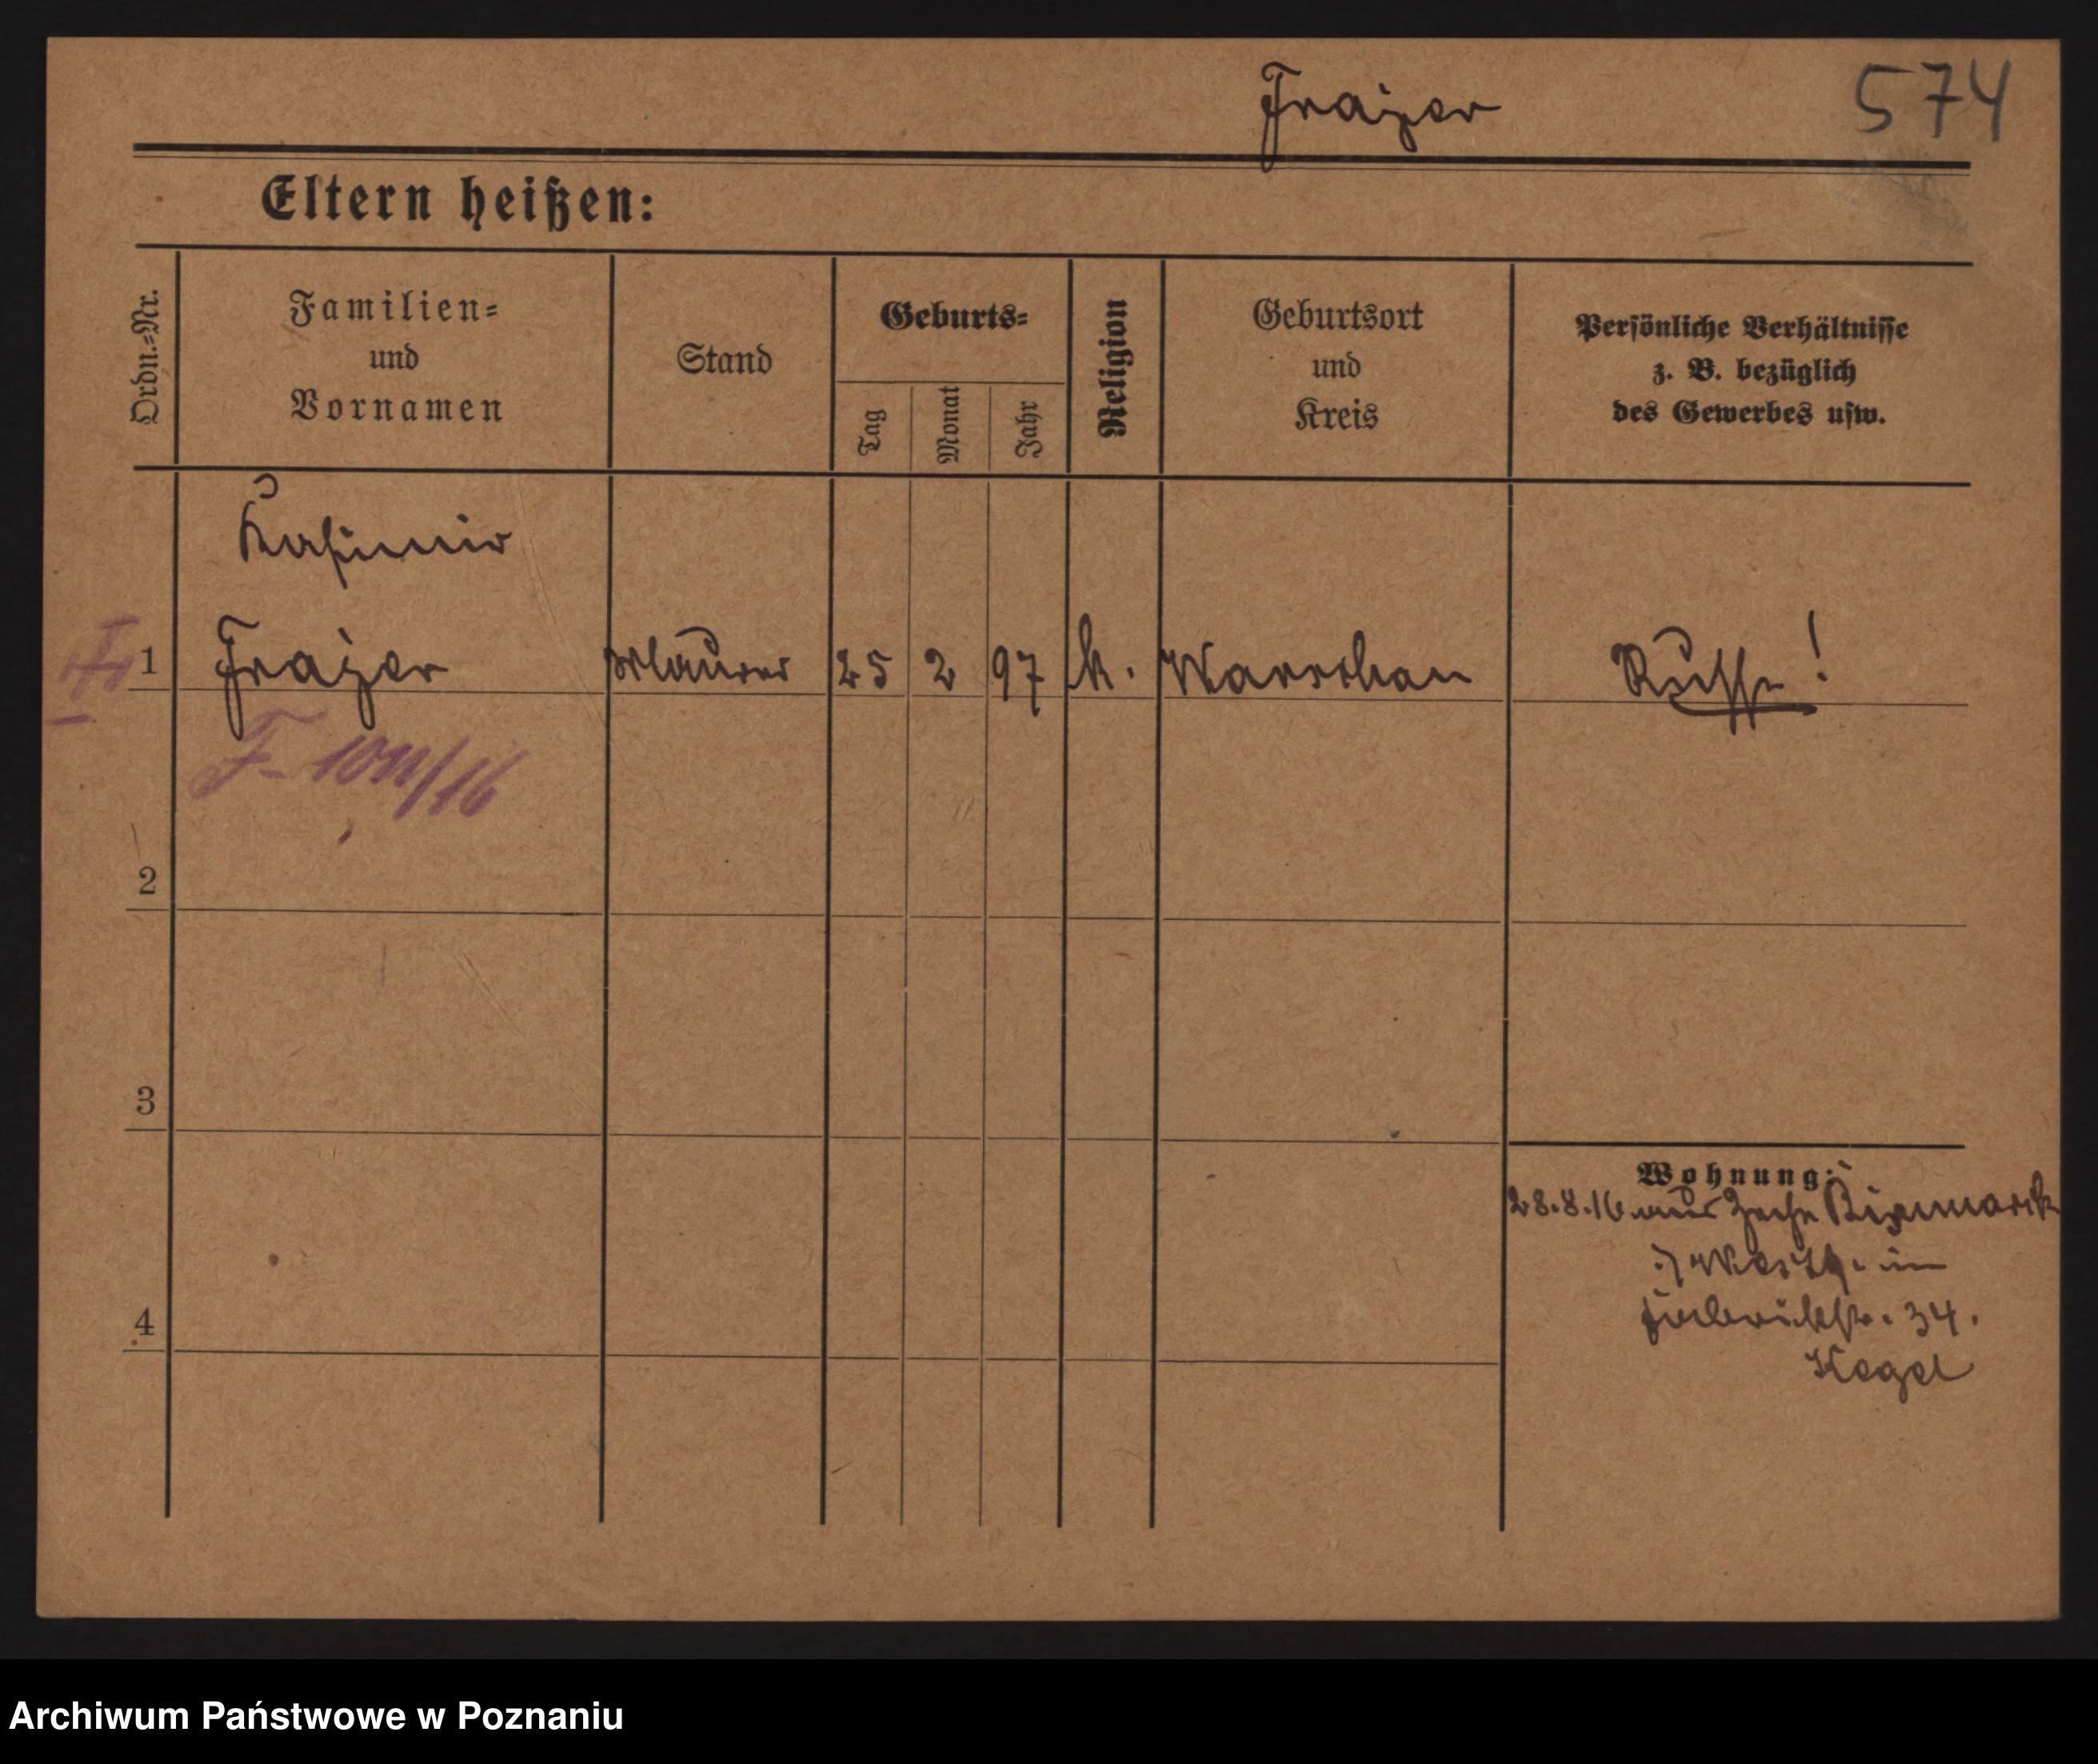 Frajzer
574
Eltern heißen:
Ordn.-Nr.
Familien-
und
Vornamen
Stand
Geburts-
Tag
Monat
Jahr
Religion
Geburtsort
und
Kreis
Persönliche Verhältnisse
z. B. bezüglich
des Gewerbes usw.
Kasimir
1 Maurer 25 2 97 k. Warschau Russe!
F. /16
2
3
4
Wohnung:
28.8.16 aus Zeche Bismarck
im
34.
Kegel
Archiwum Państwowe w Poznaniu